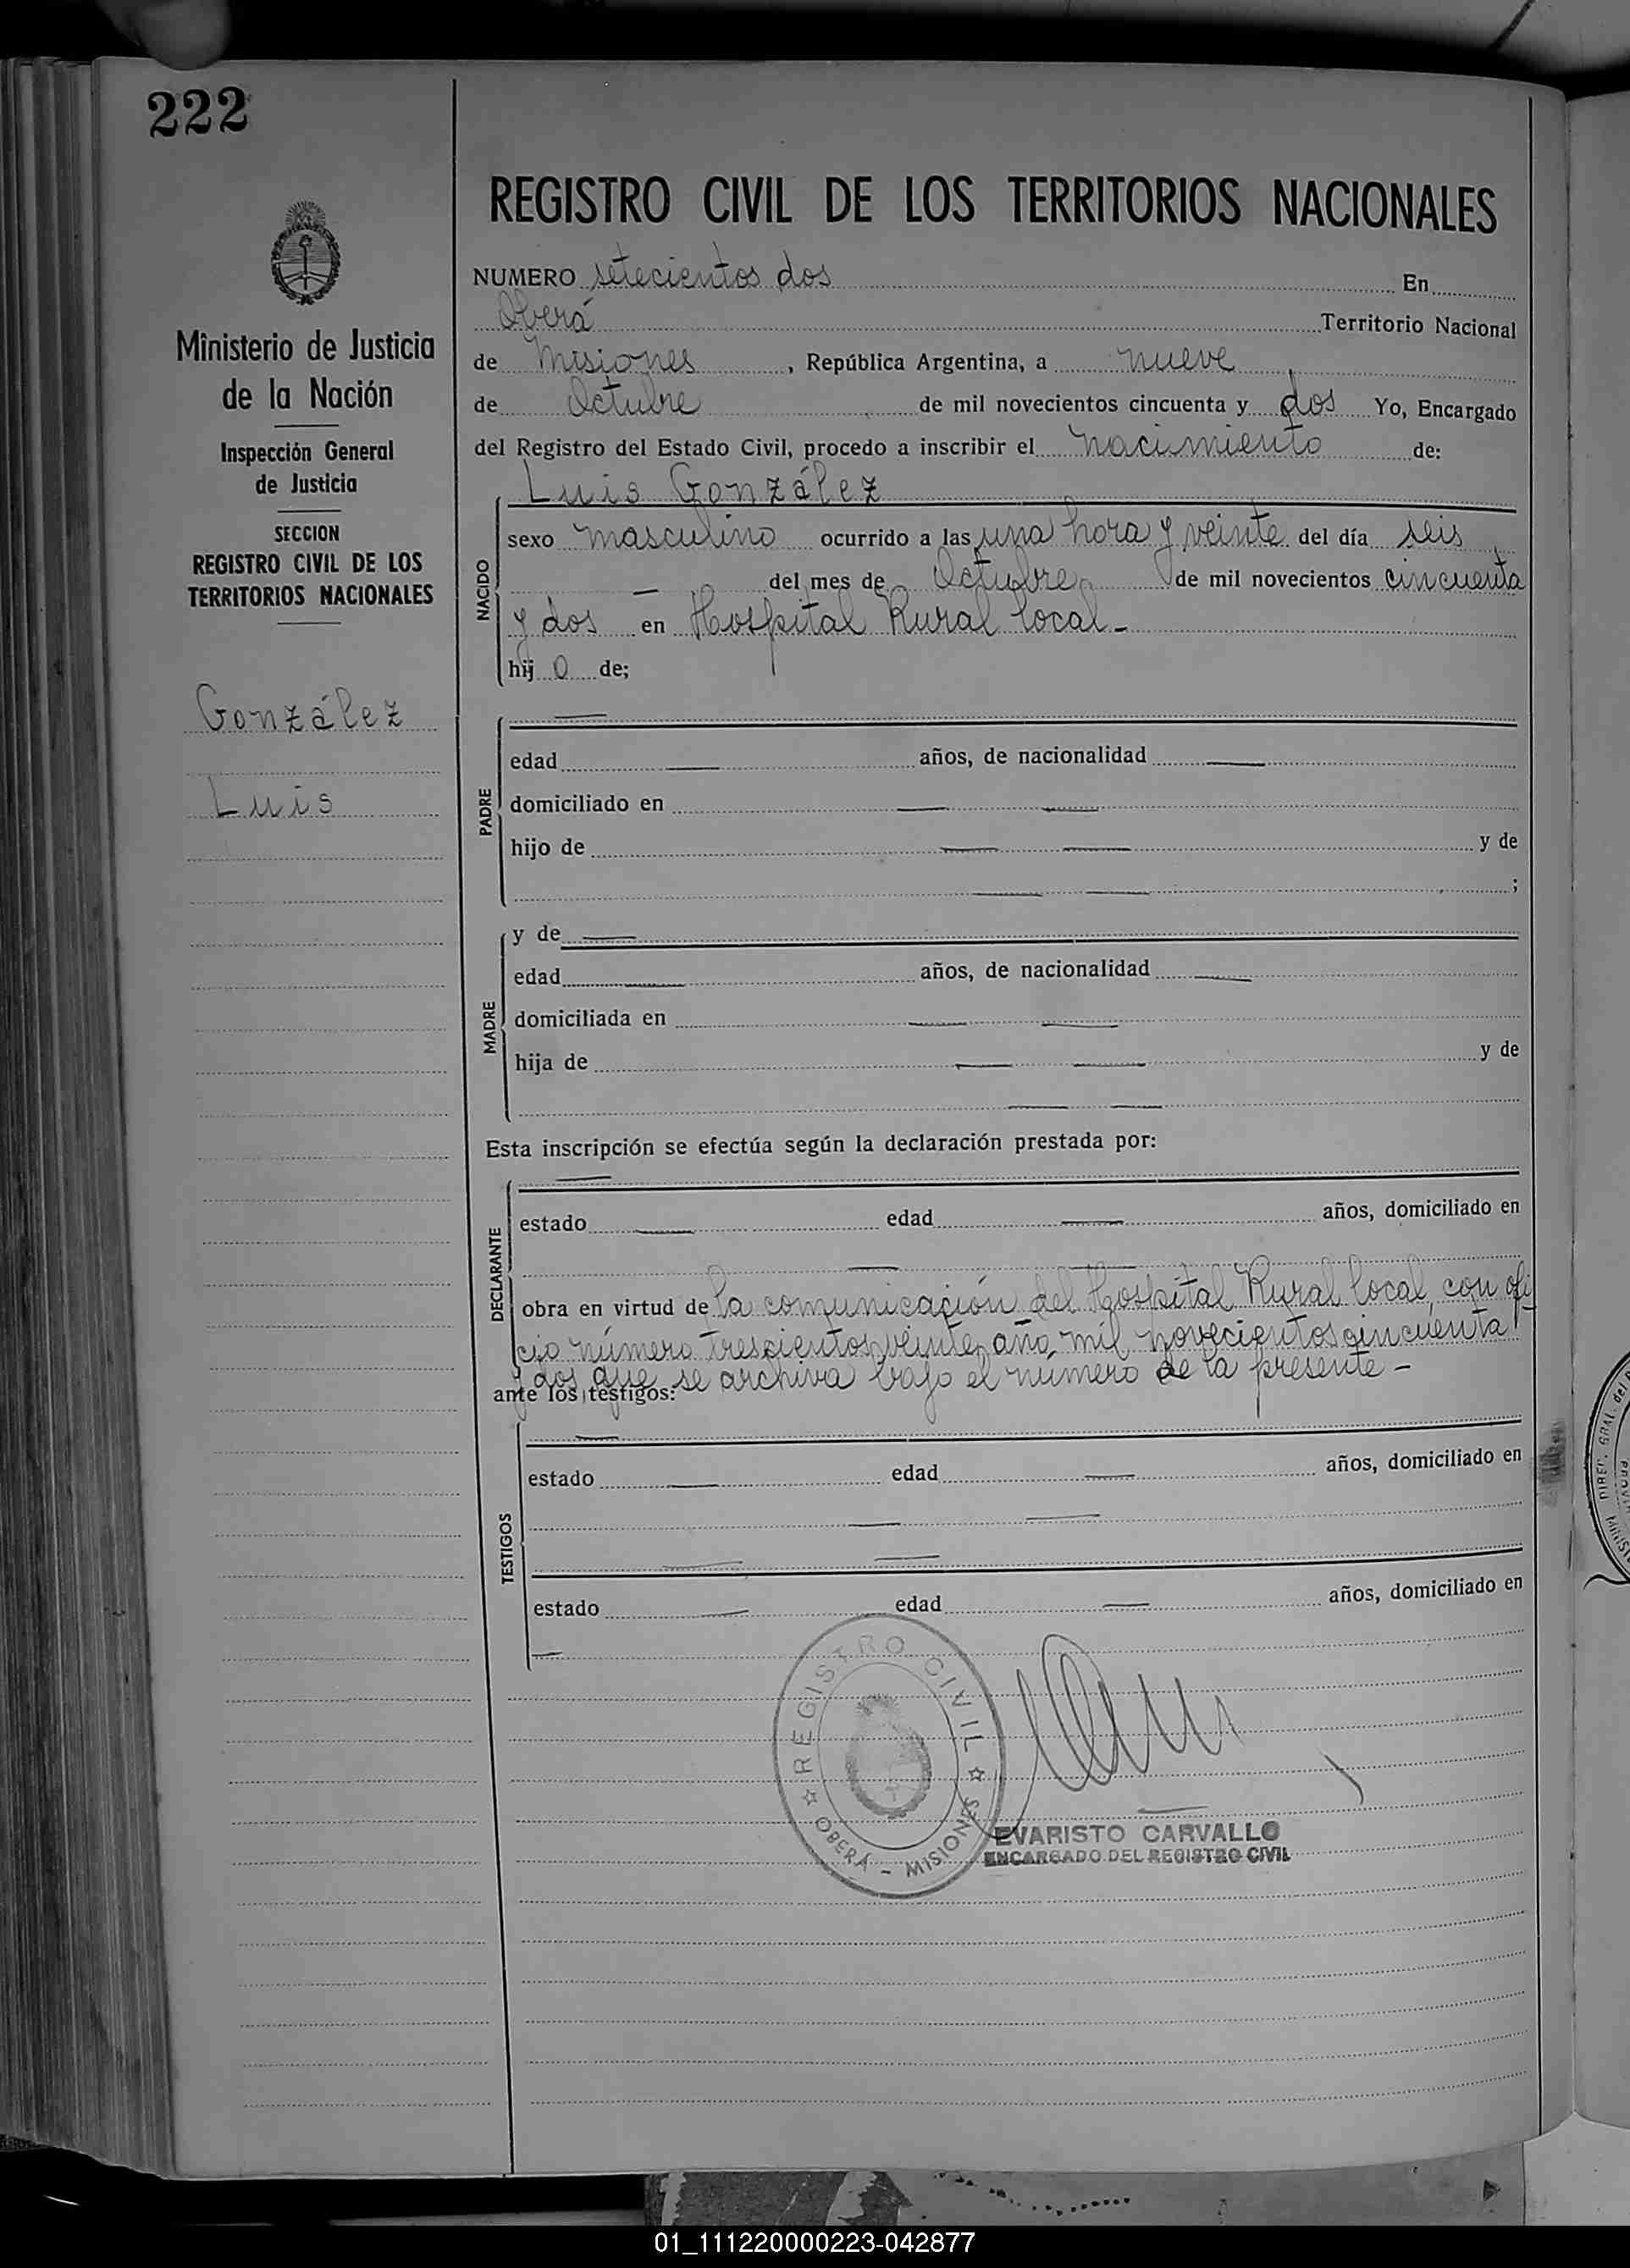 222
REGISTRO CIVIL DE LOS TERRITORIOS NACIONALES
Ministerio de Justicia
de la Nación
Inspección General
de Justicia
SECCION
REGISTRO CIVIL DE LOS
TERRITORIOS NACIONALES
González
Luis
NUMERO setecientos dos En
Oberá Territorio Nacional
de Misiones, República Argentina, a nueve
de Octubre de mil novecientos cincuenta y dos Yo, Encargado
del Registro del Estado Civil, procedo a inscribir el nacimiento de:
Luis González
NACIDO
sexo masculino ocurrido a las una hora y veinte del día seis
— del mes de Octubre de mil novecientos cincuenta
y dos en Hospital Rural local -
hij o de;
PADRE
—
edad — años, de nacionalidad —
domiciliado en — —
hijo de — — y de
— — ;
MADRE
y de —
edad — años, de nacionalidad —
domiciliada en — —
hija de — — y de
— —
Esta inscripción se efectúa según la declaración prestada por:
DECLARANTE
—
estado — edad — años, domiciliado en
— —
obra en virtud de la comunicación del Hospital Rural local, con ofi
cio número trescientos veinte, año mil novecientos cincuenta
y dos que se archiva bajo el número de la presente -
ante los testigos:
TESTIGOS
—
estado — edad — años, domiciliado en
— —
— —
estado — edad — años, domiciliado en
—
REGISTRO CIVIL
OBERÁ - MISIONES
EVARISTO CARVALLO
ENCARGADO DEL REGISTRO CIVIL
DIREC. GRAL. del
01_111220000223-042877